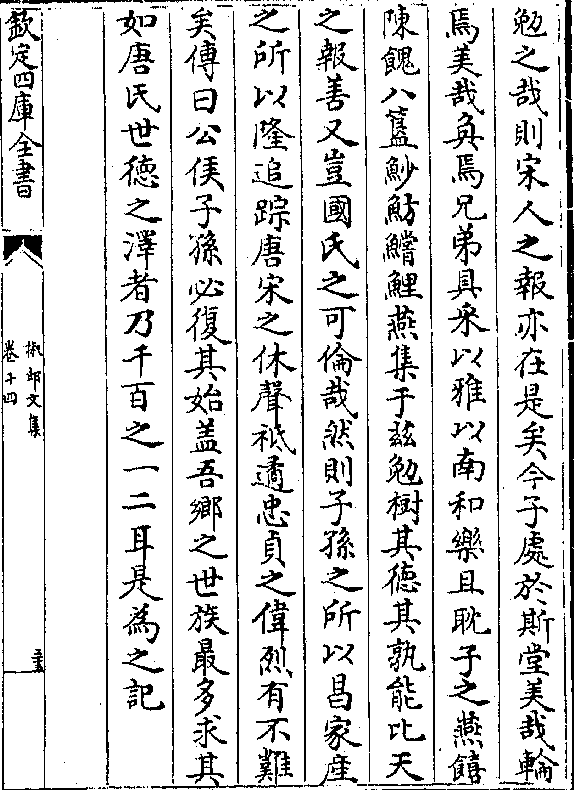 勉之哉則宋人之報亦在是矣今子處於斯堂美哉輪
焉美哉奐焉兄弟具來以雅以南和樂且耽子之燕饎
陳餽八簋魦魴鱨鯉燕集于兹勉樹其徳其孰能比天
之報善又豈國氏之可倫哉然則子孫之所以昌家産
之所以隆追踪唐宋之休聲祇遹忠貞之偉烈有不難
矣傳曰公侯子孫必復其始盖吾鄉之世族最多求其
如唐氏世徳之澤者乃千百之一二耳是為之記
欽定四庫全書
椒邱文集
卷十四